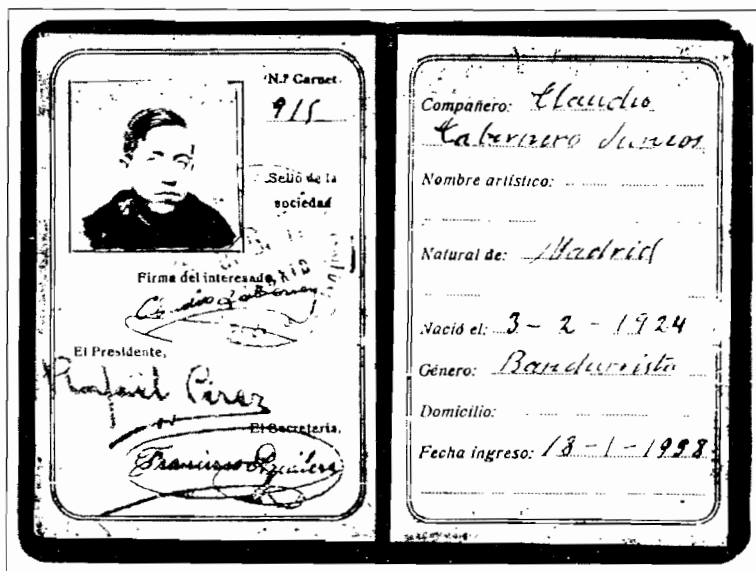 N.º Carnet.
915
Sello de la
sociedad
MADRID
Firma del interesado,
Claudio Tabernero
El Presidente,
Rafael Pérez
El Secretario,
Francisco Aguilera
Compañero: Claudio
Tabernero Juncos
Nombre artístico:
Natural de: Madrid
Nació el: 3 - 2 - 1924
Género: Bandurrista
Domicilio:
Fecha ingreso: 18 - 1 - 1938